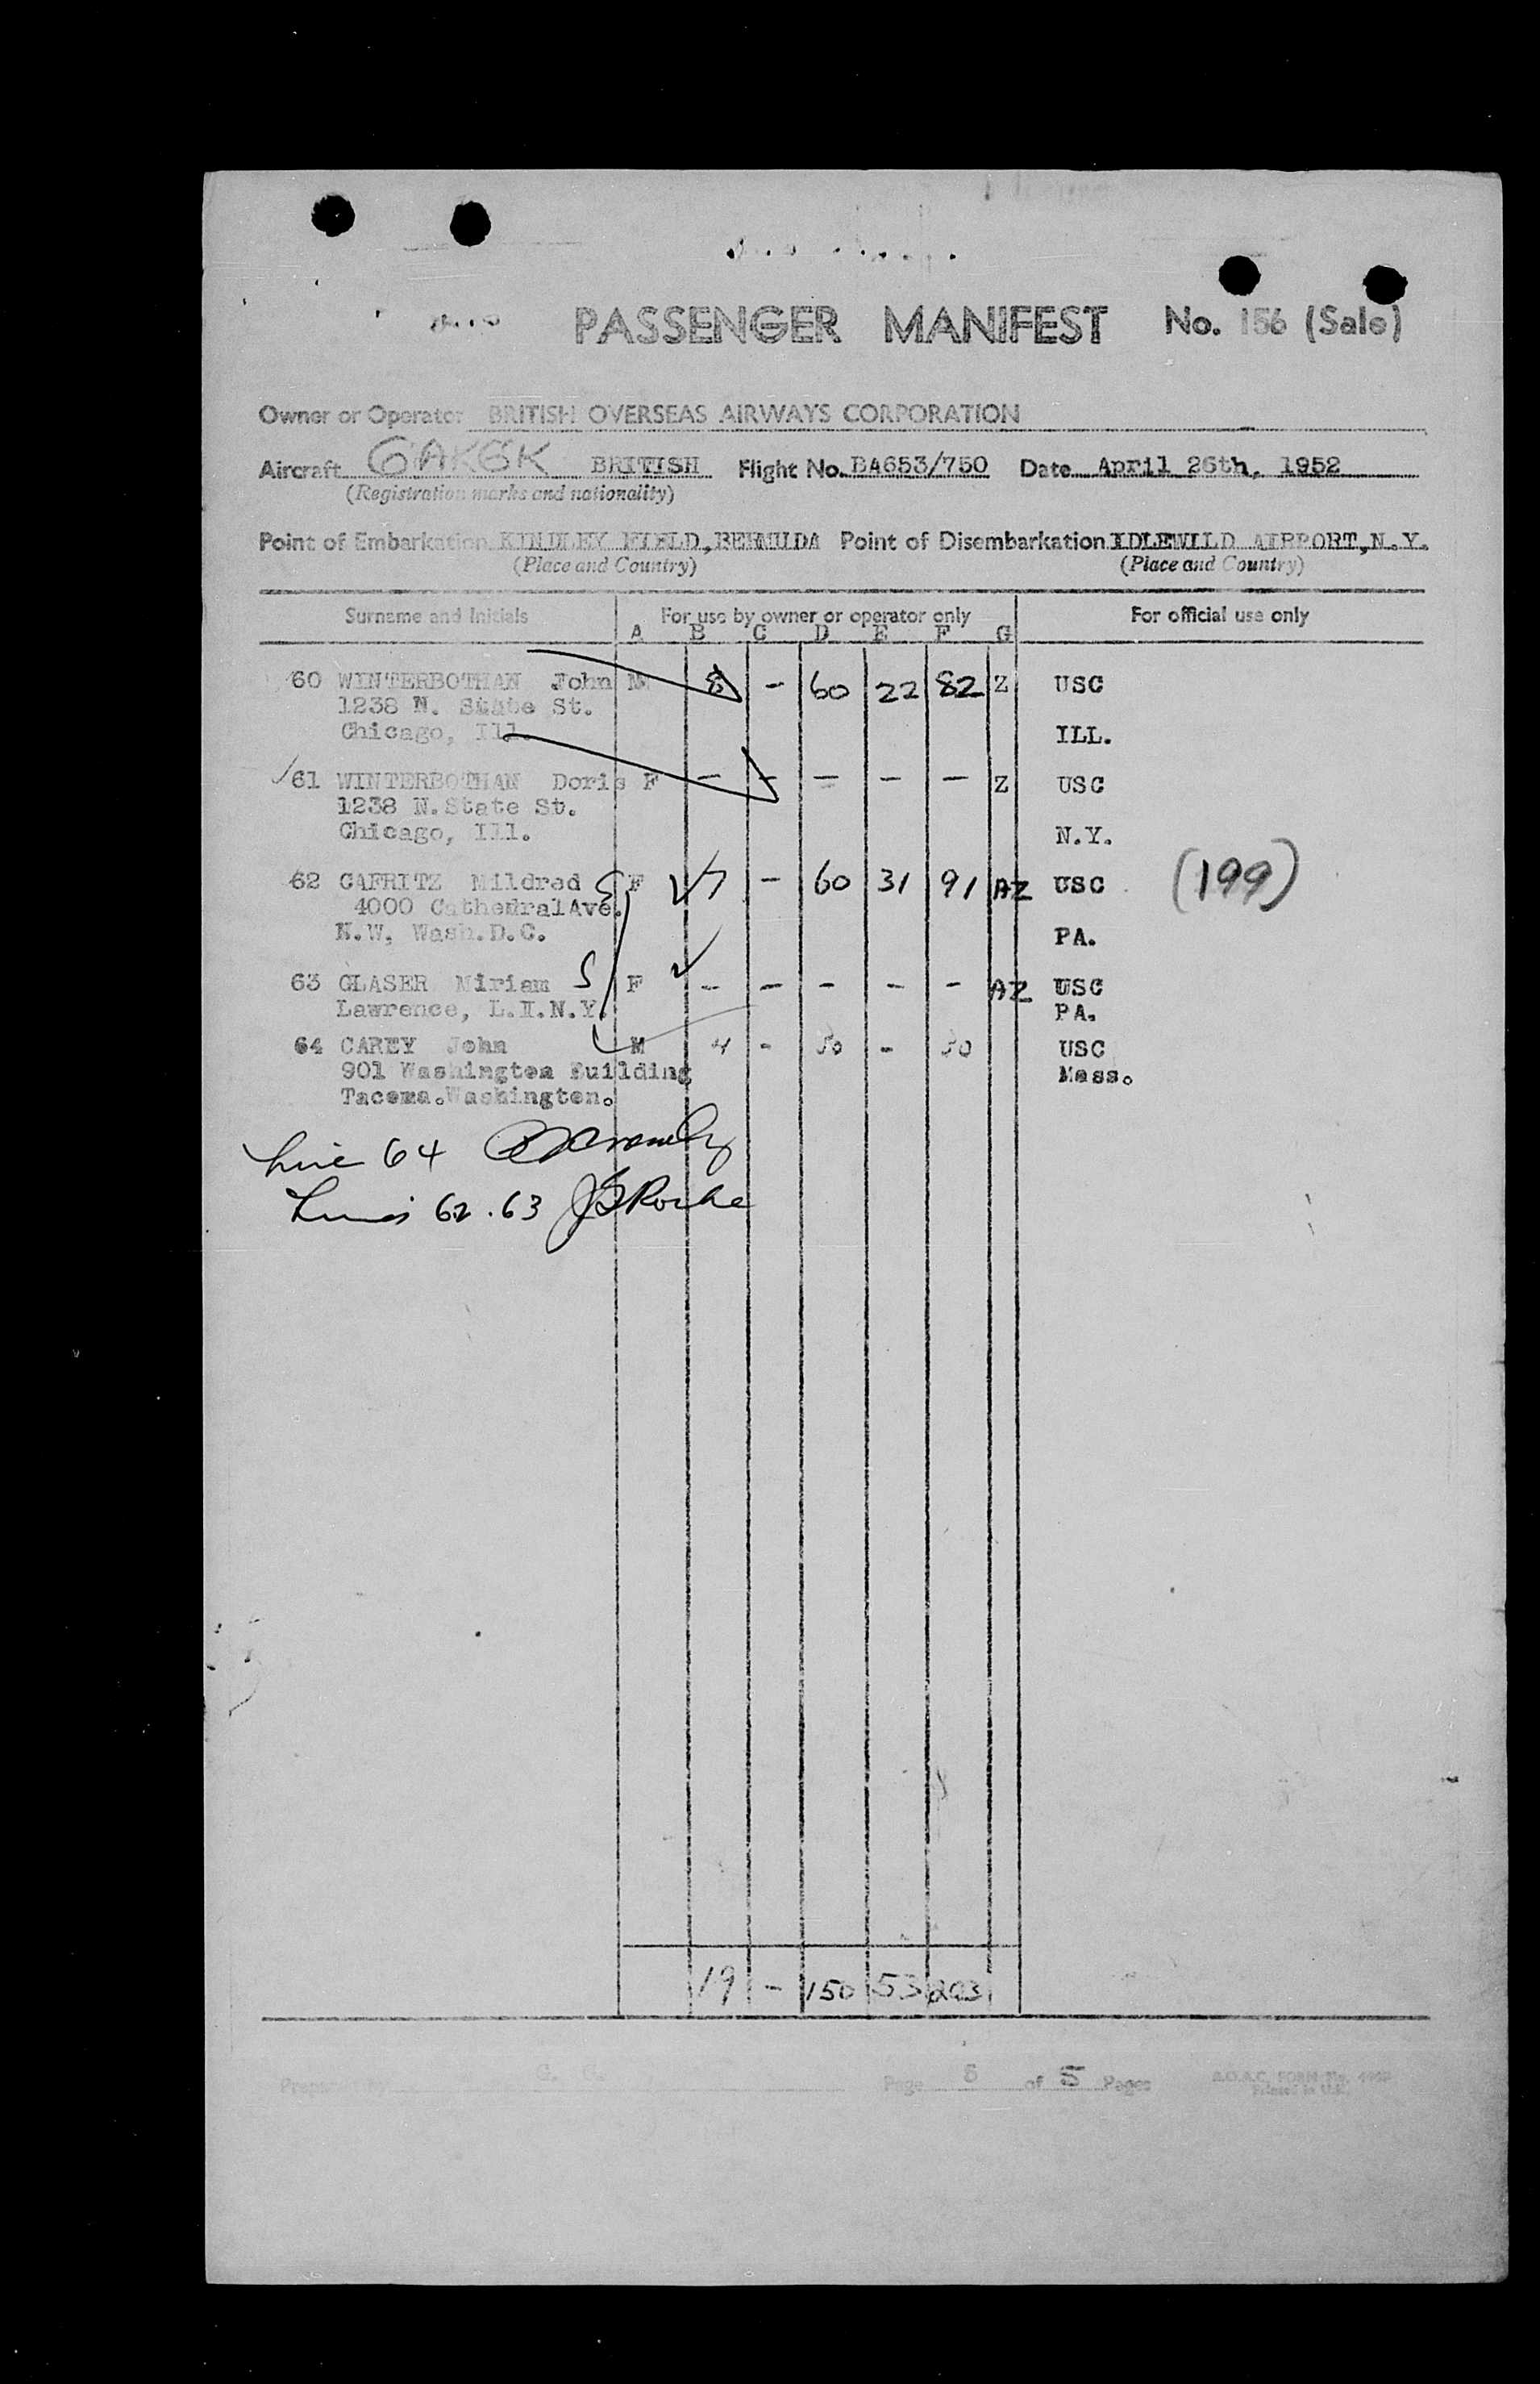 PASSENGER MANIFEST No. 156 (Sale)
Owner or Operator BRITISH OVERSEAS AIRWAYS CORPORATION
Aircraft GAKGK BRITISH Flight No. BA653/750 Date April 26th, 1952
(Registration marks and nationality)
Point of Embarkation KINDLEY FIELD,BERMUDA Point of Disembarkation IDLEWILD AIRPORT,N.Y.
(Place and Country) (Place and Country)
Surname and Initials For use by owner or operator only For official use only
A B C D E F G
60 WINTERBOTHAN John M 8 - 60 22 82 Z USC
1238 N. State St.
Chicago, Ill. ILL.
61 WINTERBOTHAN Doris F - - - - - Z USC
1238 N.State St.
Chicago, Ill. N.Y.
62 CAFRITZ Mildred F 7 - 60 31 91 AZ USC (199)
4000 CathedralAve.
N.W, Wash.D.C. PA.
63 GLASER Miriam F - - - - - AZ USC
Lawrence, L.I.N.Y. PA.
64 CAREY John M 4 - 30 - 30 USC
901 Washington Building Mass.
Tacoma.Washington.
Line 64
Lines 62.63 Roche
19 - 150 53 203
G. G.
Prepared by Page 5 of 5 Pages B.O.A.C. FORM No.
Printed in U.K.